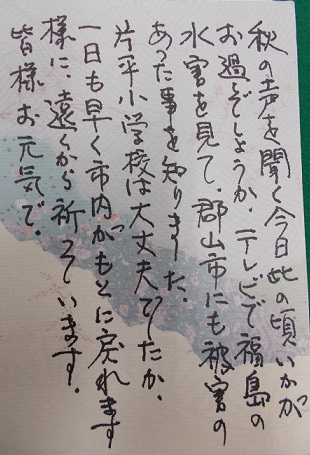 秋の声を聞く今日此の頃いかが
お過ごしでしょうか、テレビで福島の
水害を見て、郡山市にも被害の
あった事を知りました。
片平小学校は大丈夫でしたか、
一日も早く市内がもとに戻れます
様に、遠くから祈っています。
皆様お元気で。